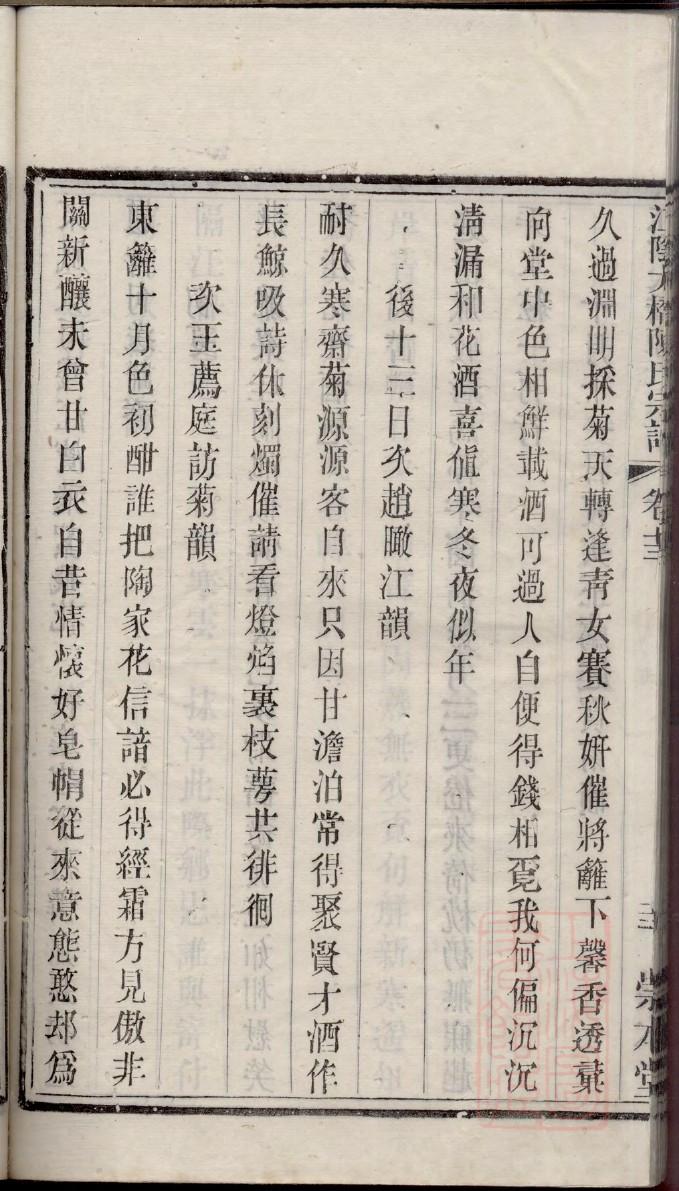 江陰大橋陳氏宗譜 卷十三 崇本堂
久過淵明採菊天轉逢靑女賽秋妍催將籬下馨香透
向堂中色相鮮載酒可過人自便得錢相覓我何偏沉沉
淸漏和花酒喜値寒冬夜似年
後十三日次趙瞰江韻
耐久寒齋菊源源客自來只因甘澹泊常得聚賢才酒作
長鯨吸詩休刻燭催請看燈焰裏枝蕚共徘徊
次王薦庭訪菊韻
東籬十月色初酣誰把陶家花信諳必得經霜方見傲非
關新釀未曾甘白衣自昔情懷好皂帽從來意態憨却爲